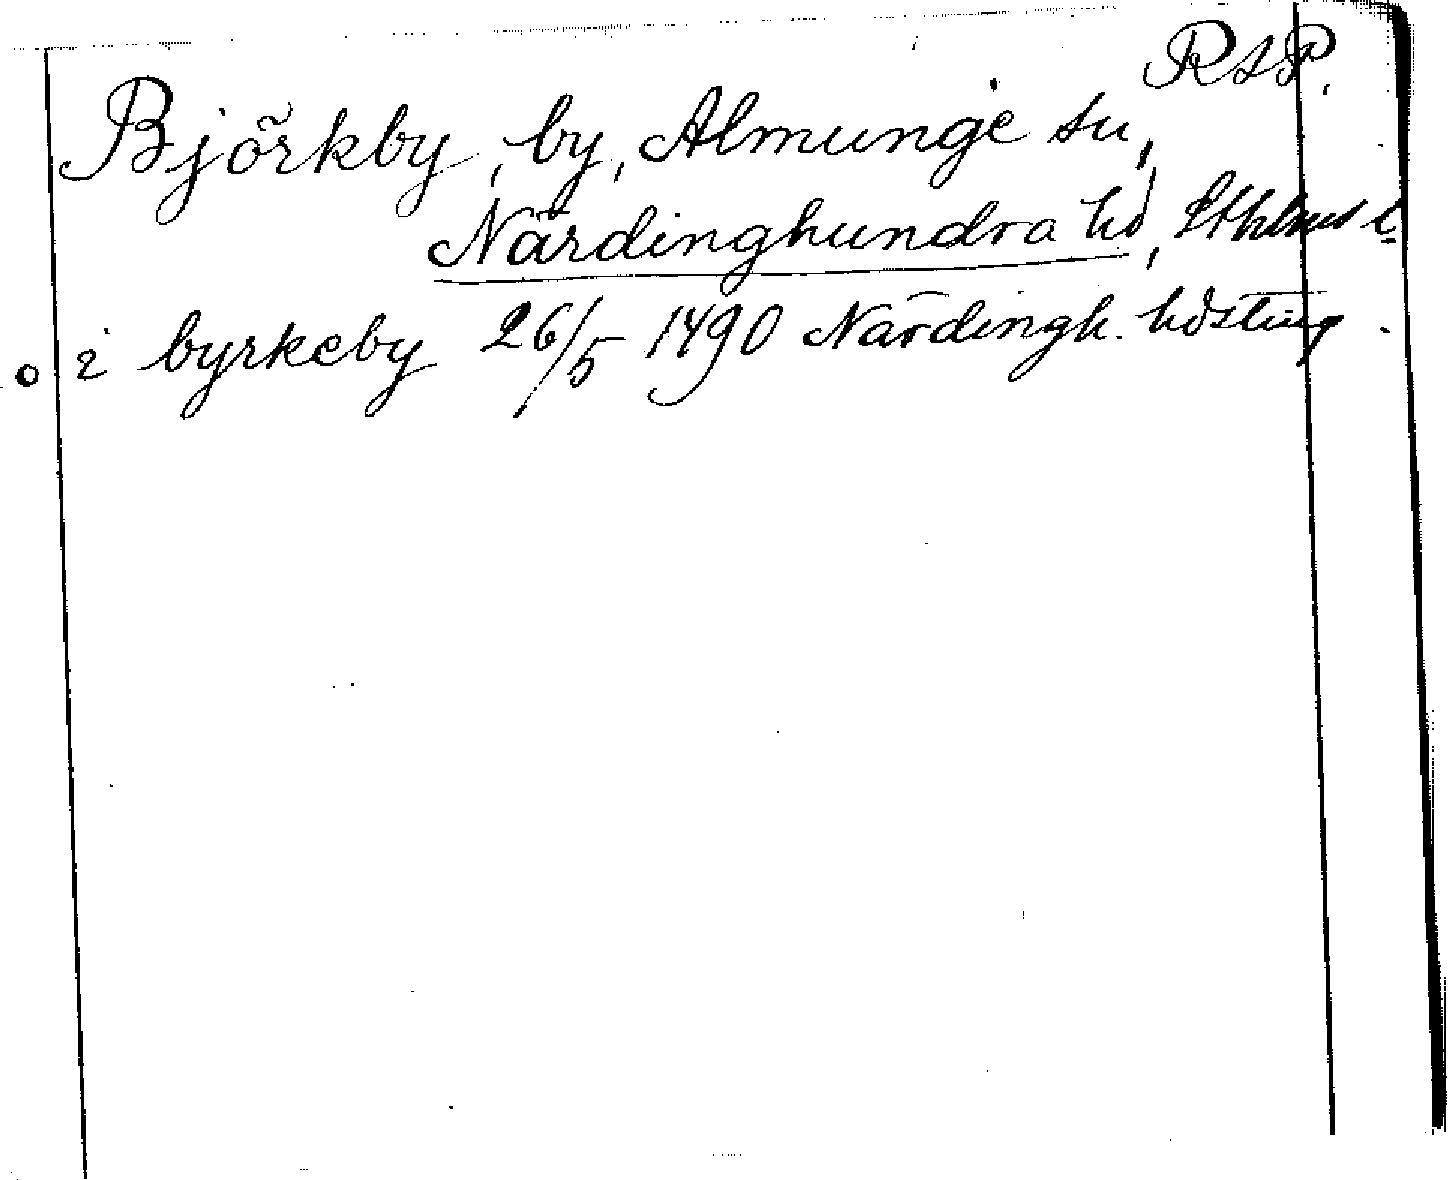 RAP.
Björkby, by, Almunge sn,
Närdinghundra hd, Sthlms l.
i byrkeby 26/5 1490 Närdingh. hdsting.